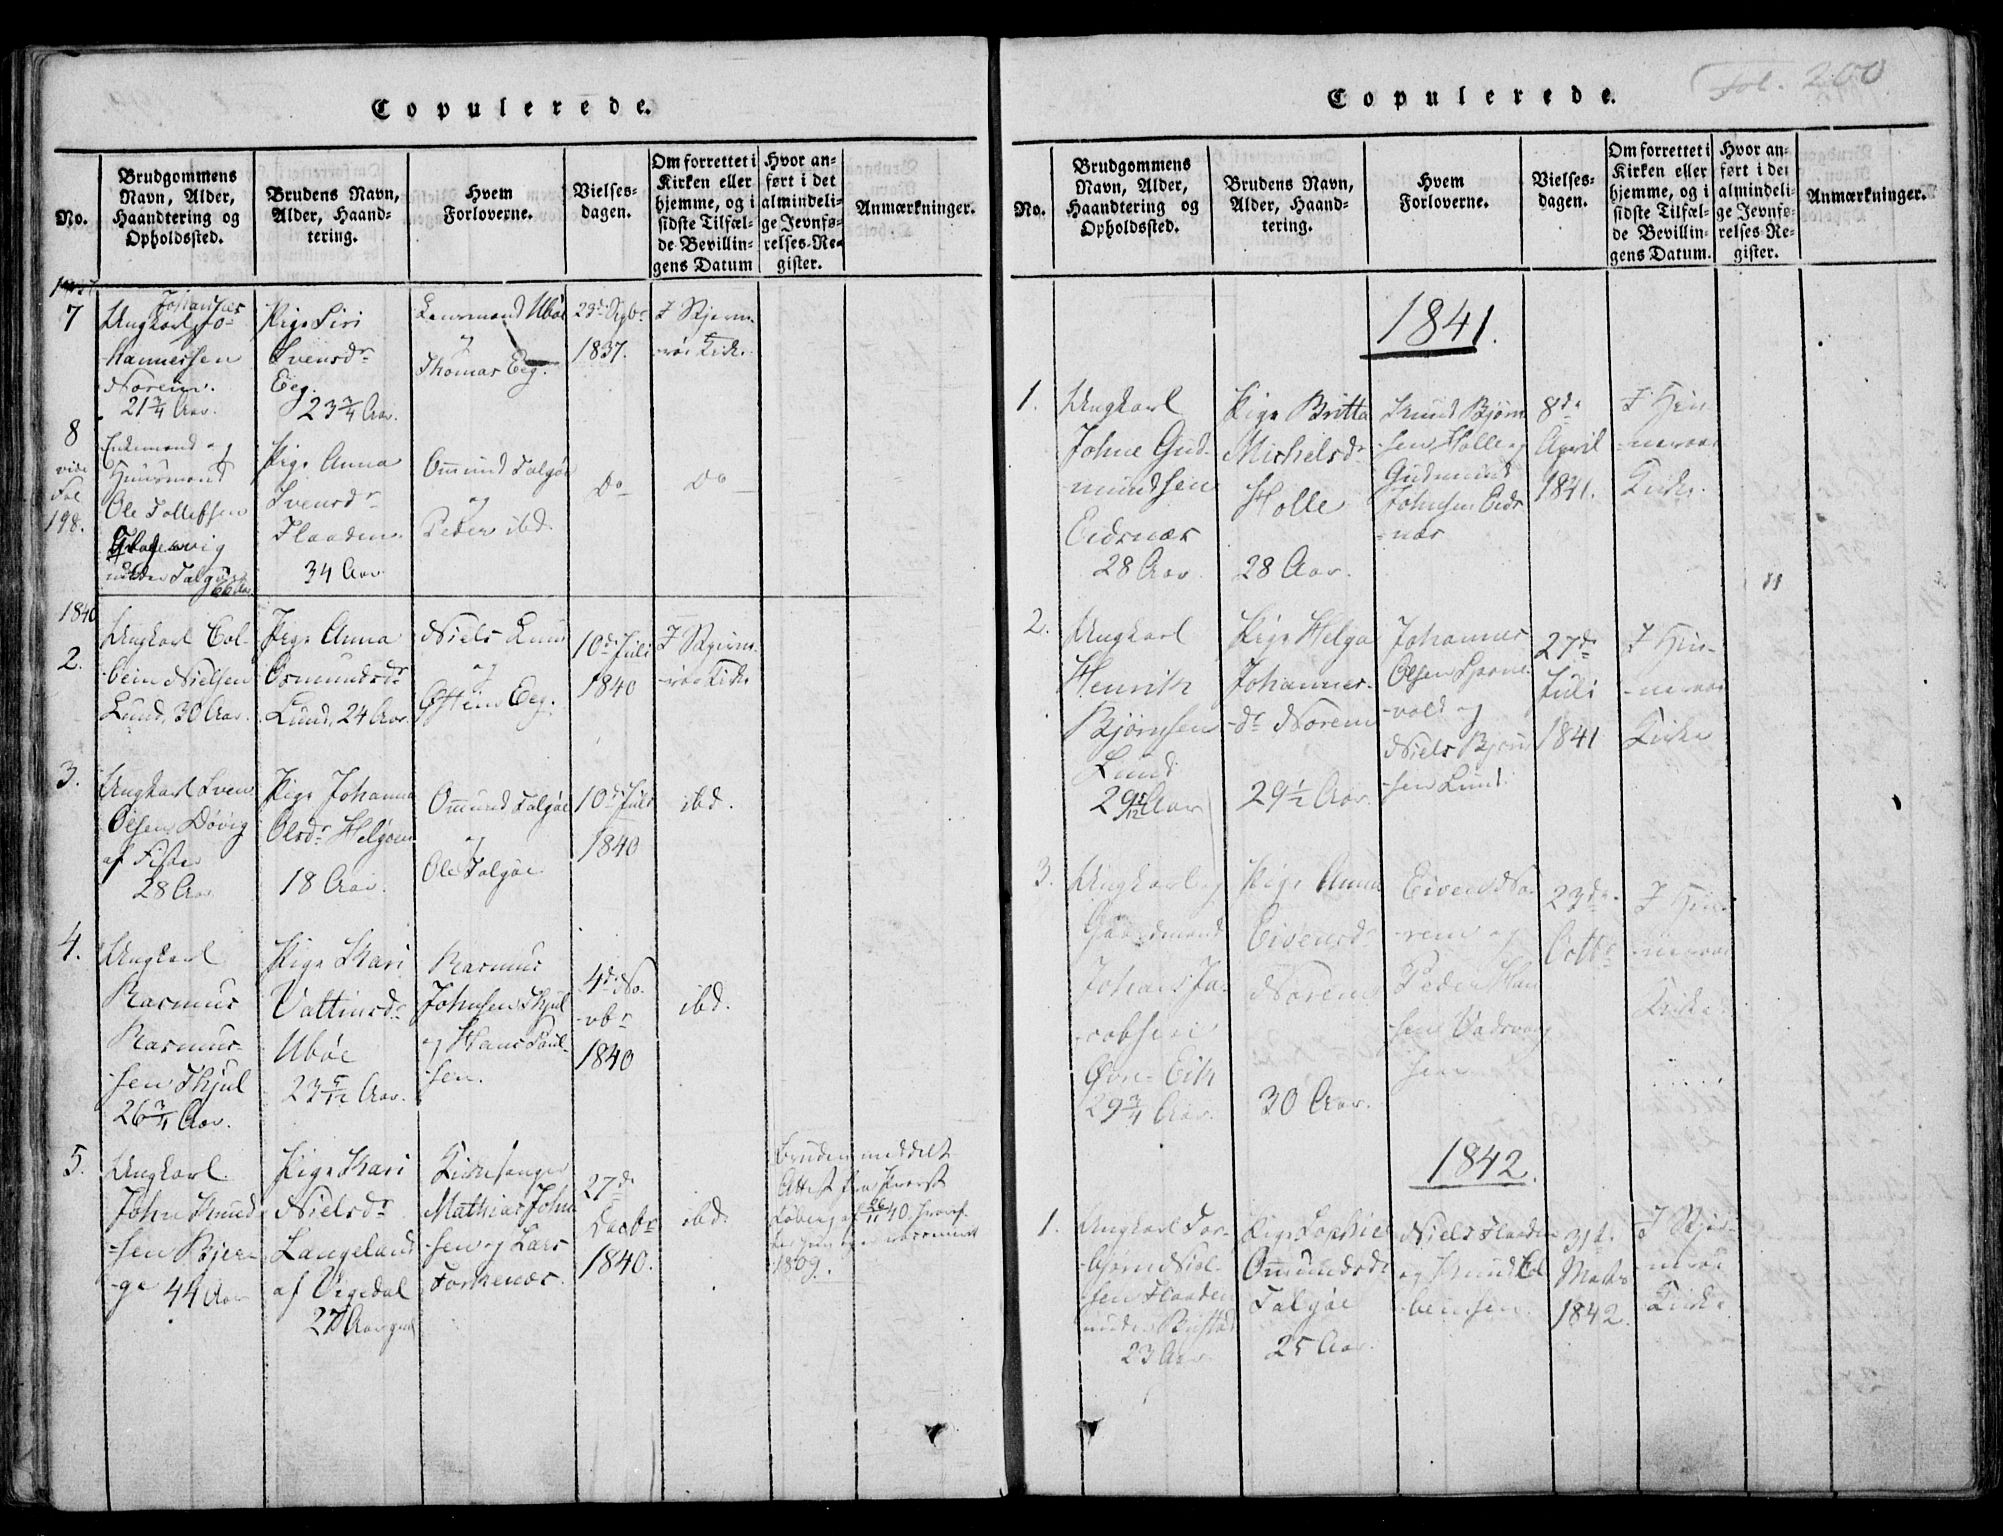 Copulerede.
No.
Brudgommens
Navn, Alder,
Haandtering og
Opholdssted.
Brudens Navn,
Alder, Haand-
tering.
Hvem
Forloverne.
Vielses-
dagen.
Om forrettet i
Kirken eller
hjemme, og i
sidste Tilfæl-
de Bevillin-
gens Datum
Hvor an-
ført i det
almindeli-
ge Jevnfø-
relses-Re-
gister.
Anmærkninger.
7
Johannes
Ungkarl Jo-
hannessen
Norem.
21 3/4 Aar.
Pige Siri
Svensdr
Eeg.
23 3/4 Aar.
Lensmand Ubøe
og
Thomas Eeg.
23de
1837.
I
Kirke
8
vide
Fol
198.
Enkemand og
Huusmand
Ole Tollefsen
under Talgøe
66 Aar
Pige Anna
Svensdr
Flaaden.
34 Aar
Omund Talgøe
og
Peder ibd.
Do
Do
1840
2.
Ungkarl Col-
bein Nielsen
Lund, 30 Aar.
Pige Anna
Osmundsdr
Lund, 24 Aar.
Niels Lund
og
Eeg.
10de Juli
1840
I
Kirke
3.
Ungkarl Sven
Olsen Døvig
af Fister
28 Aar
Pige Johanna
Olsdr Helgøen
18 Aar.
Omund Talgøe
og
Ole Talgøe
10de Juli
1840
ibd.
4.
Ungkarl
Rasmus
Rasmus-
sen Thjul
26 3/4 Aar.
Pige Kari
Valtinsdr
Ubøe
23 5/12 Aar.
Rasmus
Johnsen Thjul
og Hans Poul-
sen.
4de No-
vbr
1840
ibd.
5.
Ungkarl
John Knud-
sen Bjer-
ge 44 Aar
Pige Kari
Nielsdr
Langeland
af Vigedal
27 Aar
Kirkesanger
Mathias John
sen og Lars
27de
Decbr
1840.
ibd.
Bruden meddelt
Attest fra Provst
40.
1809.
Fol. 200
Copulerede.
No.
Brudgommens
Navn, Alder,
Haandtering og
Opholdssted.
Brudens Navn,
Alder, Haand-
tering.
Hvem
Forloverne.
Vielses-
dagen.
Om forrettet i
Kirken eller
hjemme, og i
sidste Tilfæl-
de Bevillin-
gens Datum.
Hvor an-
ført i det
almindeli-
ge Jevnfø-
relses-Re-
gister.
Anmærkninger.
1841.
1.
Ungkarl
Johne Gud-
mundsen
Eidsnæs
28 Aar
Pige Britta
Michelsdr
Holle
28 Aar.
Knud Bjørn
sen Holle og
Gudmund
Johnsen Eids
-næs
8de
April
1841.
I Hin-
neraa
Kirke.
2.
Ungkarl
Henrik
Bjørnsen
Lund
29 Aar
Pige Helga
Johannes-
dr Norem
29 1/2 Aar.
Johannes
Olsen
-vold og
Niels Bjørn
sen Lund.
27de
Juli
1841
I Hin-
neraa
Kirke
3.
Ungkarl og
Gaardmand
Johans Ja-
cobsen
Øvre Eik
29 3/4 Aar.
Pige Anna
Eivensdr
Norem
30 Aar.
Eiven No-
rem og
Peder Han
sen
sen
23de
Octbr
I Hin-
neraa
Kirke
1842.
1.
Ungkarl Tor-
bjørn Niel-
sen Flaaden
under
23 Aar.
Pige Sophie
Omundsdr
Talgøe
25 Aar.
Niels Flaaden
og Knud Col
beinsen.
31te
Marts
1842.
I
Kirke